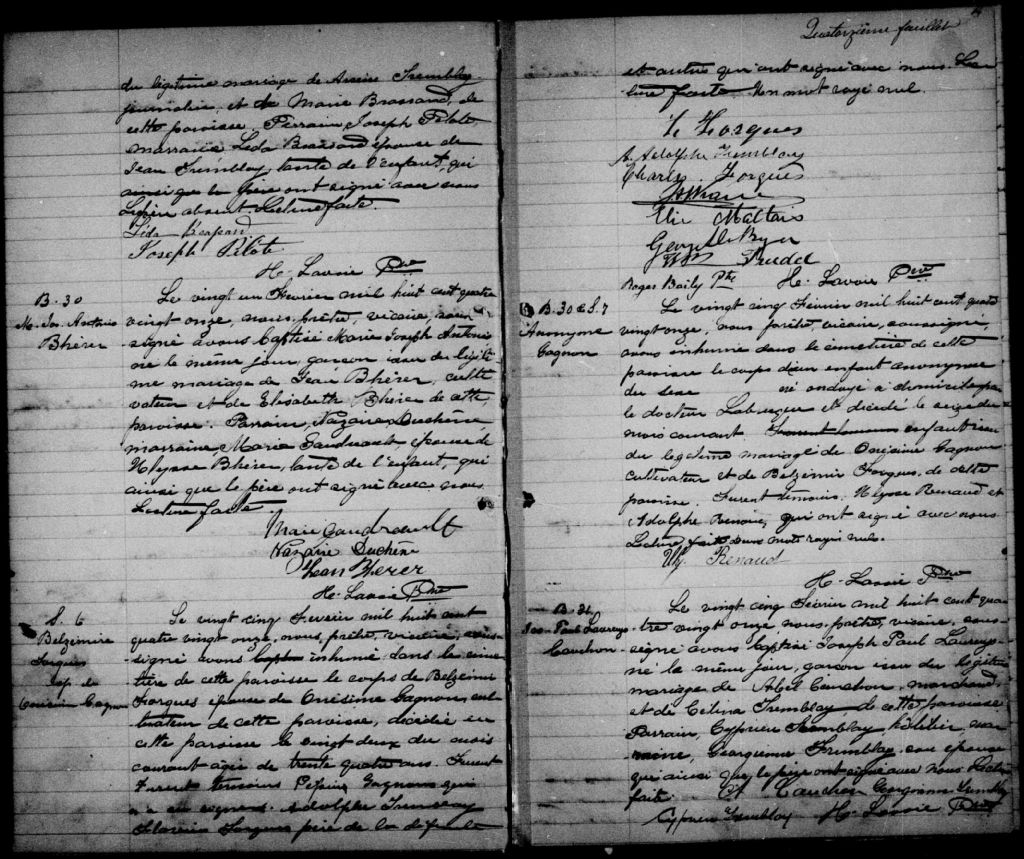 du légitime mariage de Tremblay
journalier et de Marie Brassard, de
cette paroisse. Parrain Joseph Pilote
marraine Léda Brassard épouse de
Jean Tremblay, tante de l'enfant, qui
ainsi que le père ont signé avec nous
Le père absent. Lecture faite.
Léda
Joseph Pilote
H. Lavoie Ptre
B. 30
M. Jos. Antonio
Bhérer
Le vingt un Février mil huit cent quatre
vingt onze, nous, prêtre, vicaire, sous
signé avons baptisé Marie Joseph Antonio
né le même jour, garçon issu du légiti
me mariage de Jean Bhérer, culti
vateur et de Elisabeth Bhérer de cette
paroisse. Parrain, Nazaire Duchêne,
marraine Marie Gaudreault, épouse de
Ulysse Bhérer, tante de l'enfant, qui
ainsi que le père ont signé avec nous
Lecture faite
Marie Gaudreault
Nazaire Duchêne
Jean Bherer
H. Lavoie Ptre
S. 6
Belzémire
Forgues
Gagnon
Le vingt cinq Fevrier mil huit cent
quatre vingt onze, nous, prêtre, vicaire, sous
signé avons inhumé dans le cime
tière de cette paroisse le corps de Belzémire
Forgues épouse de Onésime Gagnon, cul
tivateur de cette paroisse, décédée en
cette paroisse le vingt deux du mois
courant agée de trente quatre ans. Furent
Furent temoins Gagnon qui
signer. Adolphe Tremblay
Forgues père de la défunte
Quatorzième feuillet
et autres qui ont signé avec nous. Lec
ture faite. Un mot rayé nul.
Forgues
Adolphe Tremblay
Charles Forgues
Elie Maltais
George
Trudel
Roger Baily Ptre
H. Lavoie Ptre
B. 30 & S. 7
Anonyme
Gagnon
Le vingt cinq Février mil huit cent quatre
vingt onze, nous prêtre, vicaire, soussigné,
avons inhumé dans le cimetière de cette
paroisse le corps d'un enfant anonyme
du sexe né ondoyé à domicile par
le docteur Labrecque et décédé le seize du
mois courant enfant issu
du légitime mariage de Onésime Gagnon
cultivateur et de Belzémire Forgues de cette
paroisse. Furent témoins. Ulysse Renaud et
Adolphe qui ont signé avec nous
Lecture faite deux mots rayés nuls.
Uly. Renaud
H. Lavoie Ptre
B. 31
Jos. Paul
Cauchon
Le vingt cinq Février mil huit cent qua
tre vingt onze, nous, prêtre, vicaire, sous
signé avons baptisé Joseph Paul
né le même jour, garçon issu du légitime
mariage de Abel Cauchon, marchand,
et de Célina Tremblay de cette paroisse
Parrain, Cyprien Tremblay hôtelier, mar
raine, Georgianna Tremblay, son épouse
qui ainsi que le père ont signé avec nous Lecture
faite. Cauchon Georgianna Tremblay
Cyprien Tremblay H. Lavoie Ptre